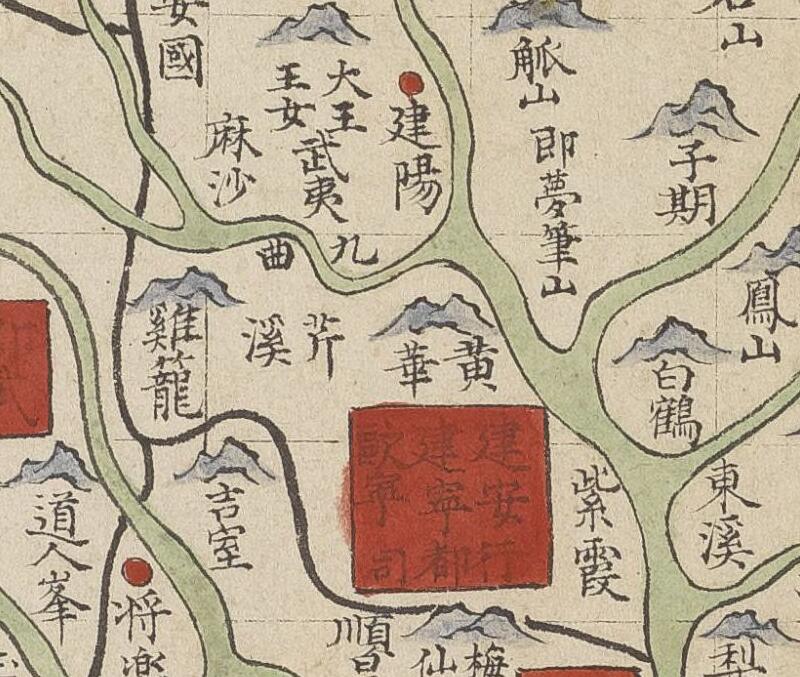 安國
大王
王女
武夷
麻沙
建陽
觚山
即夢筆山
子期
石山
九曲
鳳山
雞籠
芹溪
黄華
白鶴
建安行
建寧都
歐寧司
紫霞
東溪
道人峯
吉室
将楽
順昌
梅仙
梨